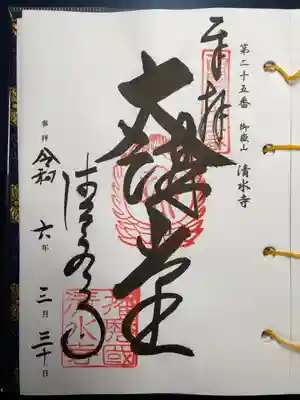 第二十五番 御嶽山 清水寺
奉拝
大講堂
清水寺
参拝 令和 六年 三月 三十日
播磨國
清水寺